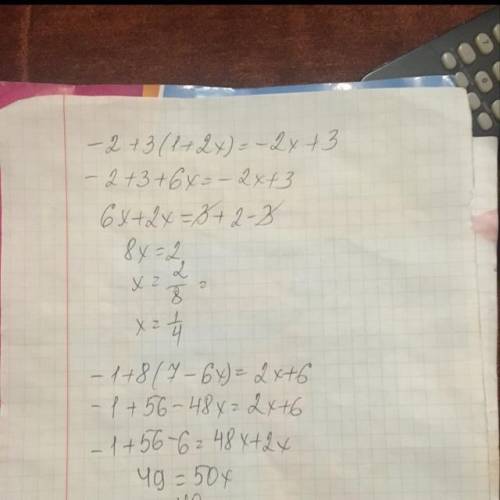 -2+3(1+2x)=-2x+3
-2+3+6x=-2x+3
6x+2x=3+2-3
8x=2
x=2/8=
x=1/4
-1+8(7-6x)=2x+6
-1+56-48x=2x+6
-1+56-6=48x+2x
49=50x